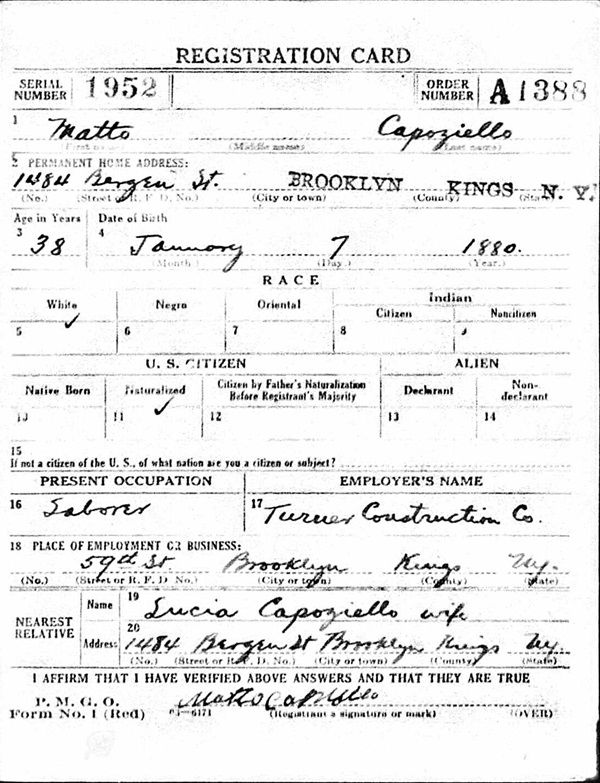 REGISTRATION CARD
SERIAL NUMBER 1952 ORDER NUMBER A1388
1 Matto Capoziello
(First name) (Middle name) (Last name)
2 PERMANENT HOME ADDRESS:
1484 Bergen St. BROOKLYN KINGS N. Y.
(No.) (Street or R. F. D. No.) (City or town) (County) (State)
Age in Years Date of Birth
3 38 4 January 7 1880.
(Month.) (Day.) (Year.)
RACE
White Negro Oriental Indian
Citizen Noncitizen
5 ✓ 6 7 8 9
U. S. CITIZEN ALIEN
Native Born Naturalized Citizen by Father's Naturalization Before Registrant's Majority Declarant Non-declarant
10 11 ✓ 12 13 14
15
If not a citizen of the U. S., of what nation are you a citizen or subject?
PRESENT OCCUPATION EMPLOYER'S NAME
16 Laborer 17 Turner Construction Co.
18 PLACE OF EMPLOYMENT OR BUSINESS:
59th St Brooklyn Kings Ny.
(No.) (Street or R. F. D. No.) (City or town) (County) (State)
NEAREST RELATIVE Name 19 Lucia Capoziello wife
Address 20 1484 Bergen St Brooklyn Kings Ny.
(No.) (Street or R. F. D. No.) (City or town) (County) (State)
I AFFIRM THAT I HAVE VERIFIED ABOVE ANSWERS AND THAT THEY ARE TRUE
P. M. G. O.
Form No. 1 (Red) 03-6171 (Registrant's signature or mark) (OVER)